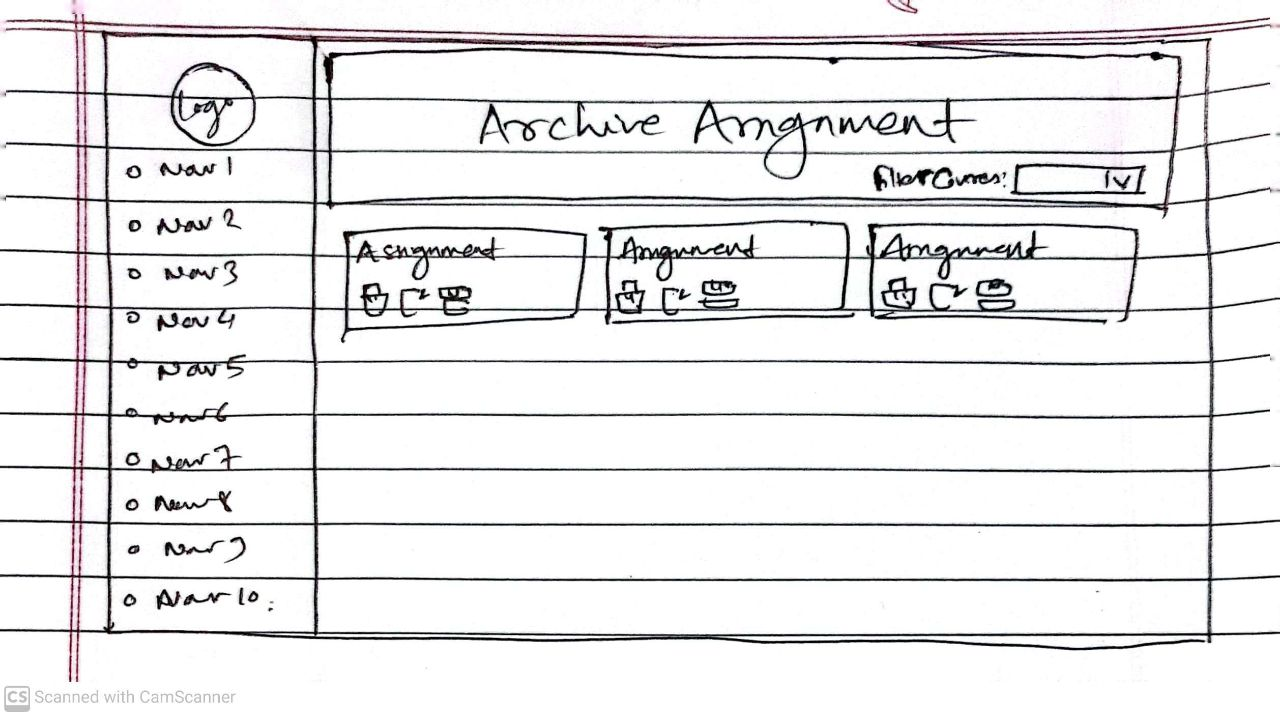 Logo
Nav 1
Nav 2
Nav 3
Nav 4
Nav 5
Nav 6
Nav 7
Nav 8
Nav 9
Nav 10
Archive Assignment
Filter Courses:
Assignment
Assignment
Assignment
CS Scanned with CamScanner